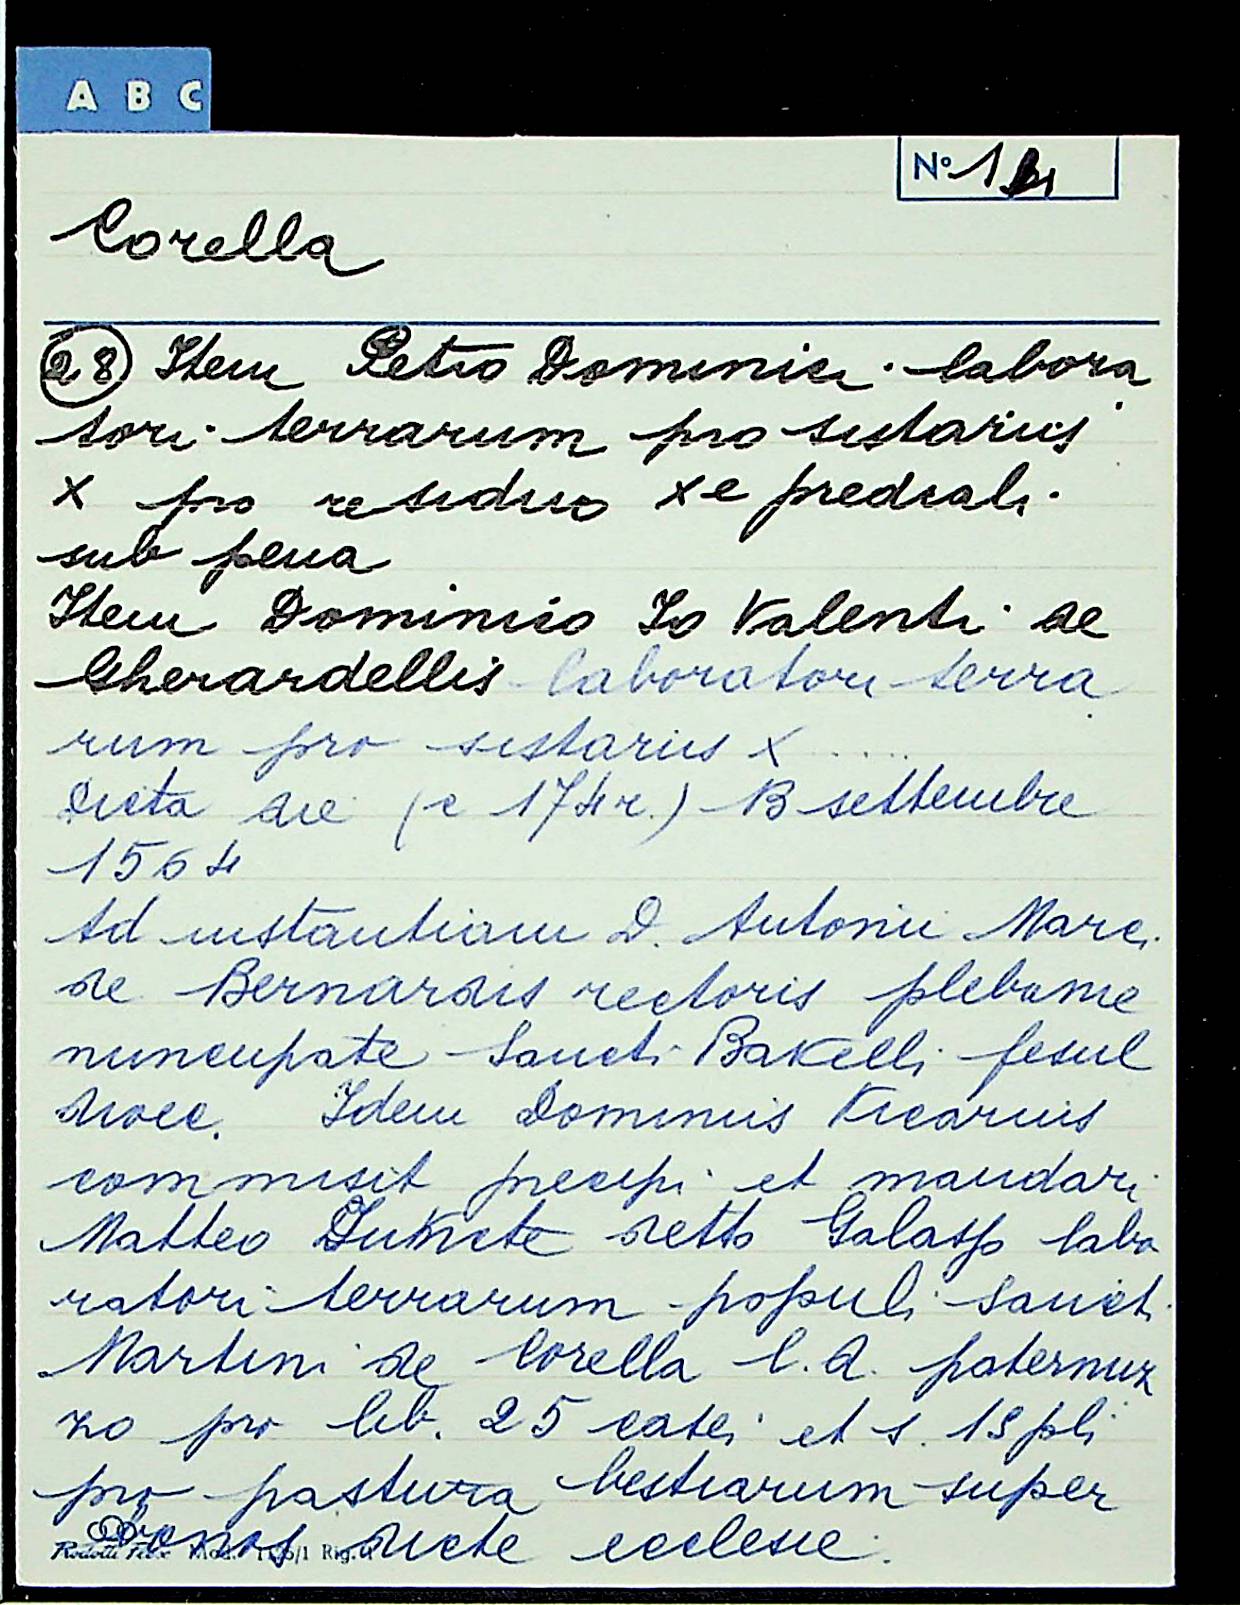 A B C
N° 1
Corella
28 Item Petro Dominici labora
tori terrarum pro sistariis
x pro residuo x e prediali
sub pena
Item Dominico Jo Valenti de
Gherardellis laboratori terra
rum pro sistariis x .....
Dicta die (c 174r.) 13 settembre
1564
Ad instantiam D. Antonii Marci
de Bernardis rectoris plebanie
nuncupate Sancti Bavelli fesul
dioec. Idem Dominus Vicarius
commisit precipi et mandari
Matteo detto Galasso labo
ratori terrarum populi Sancti
Martini de Corella l.d. paternuz
zo pro lib. 25 casei et s. 19 pli
pro pastura bestiarum super
bonos dicte ecclesie.